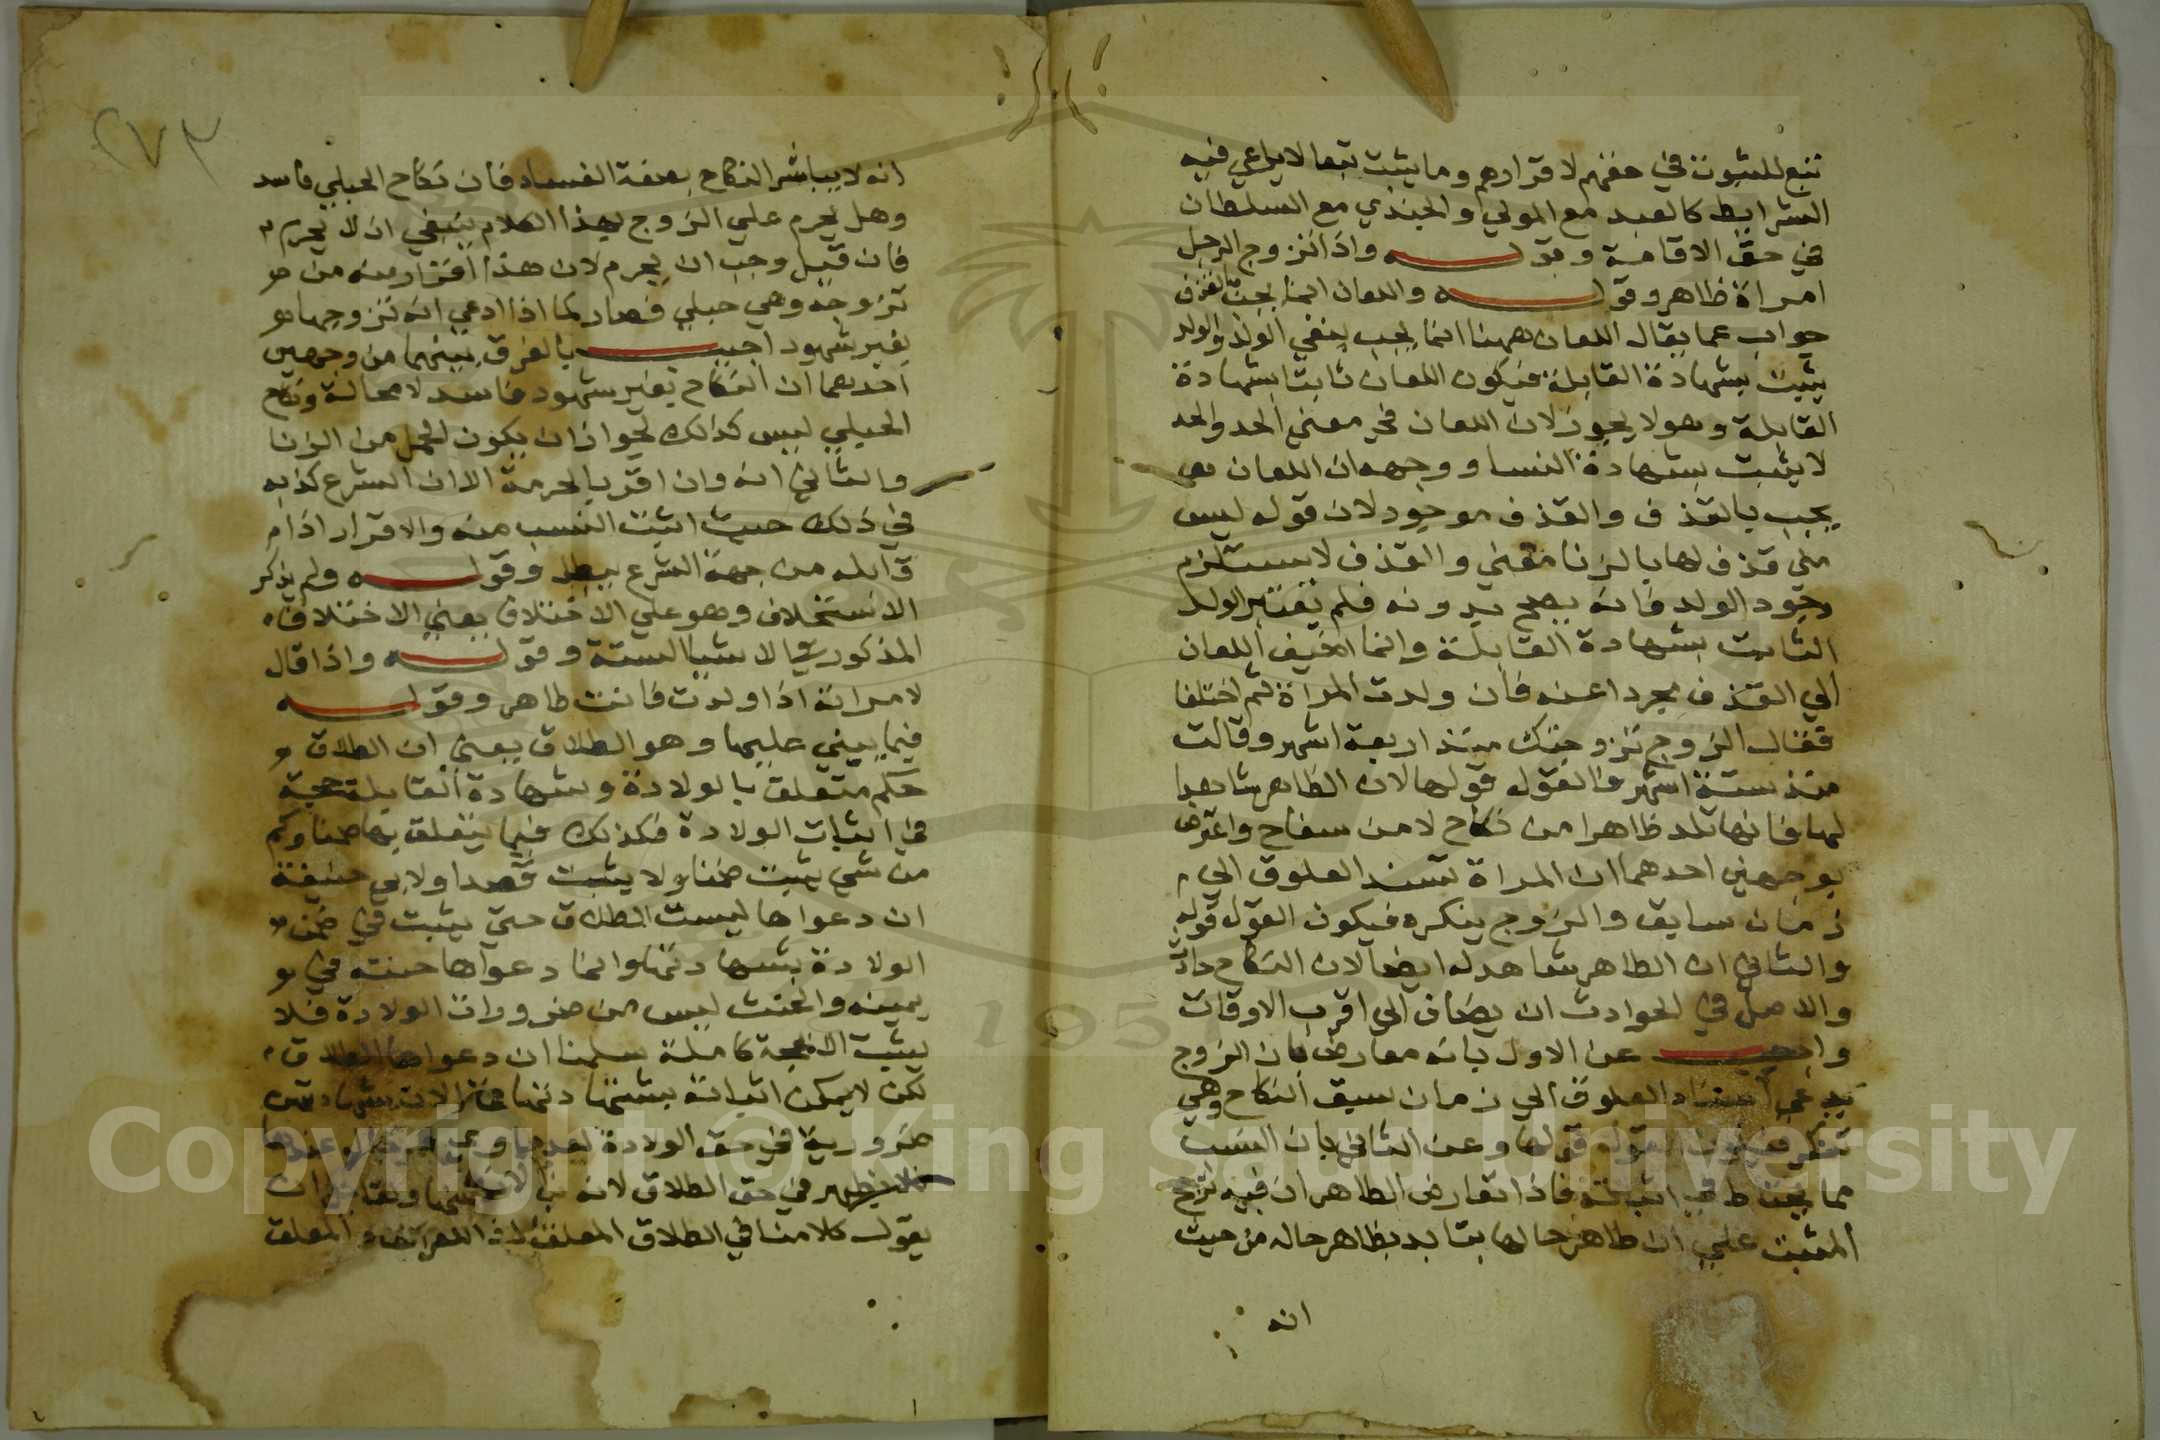 تبع للثبوت في حقهم لاقرارهم وما يثبت تبعا لا يراعي فيه
الشرايط كالعبد مع المولي والجندي مع السلطان
في حق الاقامة وقولـــه واذا تزوج الرجل
امراة ظاهر وقولـــه واللعان انما يجب بالقذف
جواب عما يقال اللعان ههنا انما يجب بنفي الولد والولد
يثبت بشهادة القابلة فيكون اللعان ثابتا بشهادة
القابلة وهو لا يجوز لان اللعان في معني الحد والحد
لا يثبت بشهادة النسا ووجهه ان اللعان
يجب بالقذف والقذف موجود لان قوله ليس
مني قذف لها بالزنا معني والقذف لا يستلزم
وجود الولد فانه يصح بدونه فلم يعتبر الولد
الثابت بشهادة القابلة وانما اضيف اللعان
الي القذف مجردا عنه فان ولدت المراة ثم اختلفا
فقال الزوج تزوجتك منذ اربعة اشهر وقالت
منذ ستة اشهر فالقول قولها لان الظاهر شاهد
لها فانها تلد ظاهرا من نكاح لا من سفاح واعترض
بوجهين احدهما ان المراة تسند العلوق الي
زمان سابق والزوج ينكره فيكون القول قوله
والثاني ان الظاهر شاهد له ايضا لان النكاح حادث
والاصل في الحوادث ان يضاف الي اقرب الاوقات
واجيـــب عن الاول بانه معارض بان الزوج
يدعي اسناد العلوق الي زمان سبق النكاح وهي
تنكر فيكون القول قولها وعن الثاني بان النسب
مما يحتاط في اثباته فاذا تعارض الظاهران فيه ترجح
المثبت علي ان ظاهر حالها يتايد بظاهر حاله من حيث
انه
٢٧٣
انه لا يباشر النكاح بصفة الفساد فان نكاح الحبلي فاسد
وهل يحرم علي الزوج بهذا الكلام ينبغي ان لا يحرم
فان قيل وجب ان يحرم لان هذا اقرار منه من
تزوجه وهي حبلي فصار كما اذا ادعي انه تزوجها
بغير شهود اجيـــب بالفرق بينهما من وجهين
احدهما ان النكاح بغير شهود فاسد لا محالة ونكاح
الحبلي ليس كذلك لجواز ان يكون الحمل من الزنا
والثاني انه وان اقر بالحرمة الا ان الشرع كذبه
في ذلك حيث اثبت النسب منه والاقرار اذا
قابله من جهة الشرع يبطل وقولـــه ولم يذكر
الاستحلاف وهو علي الاختلاف يعني الاختلاف
المذكور في الاشيا الستة وقولـــه واذا قال
لامراته اذا ولدت فانت طاهر وقولـــه
فيما يبني عليها وهو الطلاق يعني ان الطلاق
حكم متعلق بالولادة وشهادة القابلة حجة
في اثبات الولادة فكذلك فيما يتعلق بها ضمنا وكم
من شي يثبت ضمنا ولا يثبت قصدا ولابي حنيفة
ان دعواها ليست الطلاق حتي يثبت في ضمن
الولادة بشهادتها وانما دعواها حنثه في
يمينه والحنث ليس من ضرورات الولادة فلا
يثبت الا بحجة كاملة سلمنا ان دعواها الطلاق
لكن لا يمكن اثباته بشهادتها لان شهادتهن
ضرورية في حق الولادة
فلا يظهر في حق الطلاق لانه
يقول كلامنا في الطلاق المعلق